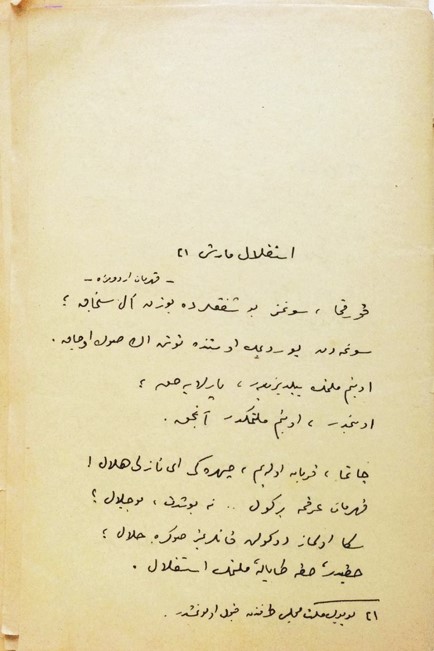 استقلال مارشی ٢١
ـ قهرمان اردومزه ـ
قورقما ، سونمز بو شفقلرده یوزن آل سنجاق ؛
سونمه‌دن یوردیمك اوستنده توتن اڭ صوڭ اوجاق .
او بنم ملتمڭ ییلدیزیدر ، پارلایه‌جق ؛
او بنمدر ، او بنم ملتمكدر آنجق .
چاتما ، قربان اوله‌یم ، چهره‌كی ای نازلی هلال !
قهرمان عرقمه برگول .. نه بو شدت ، بو جلال ؟
سڭا اولماز دوكولن قانلریمز صوڭره حلال ؛
حقیدر ، حقه طاپان ، ملتمڭ استقلال .
٢١ بویوك ملت مجلسی طرفندن قبول اولونمشدر .